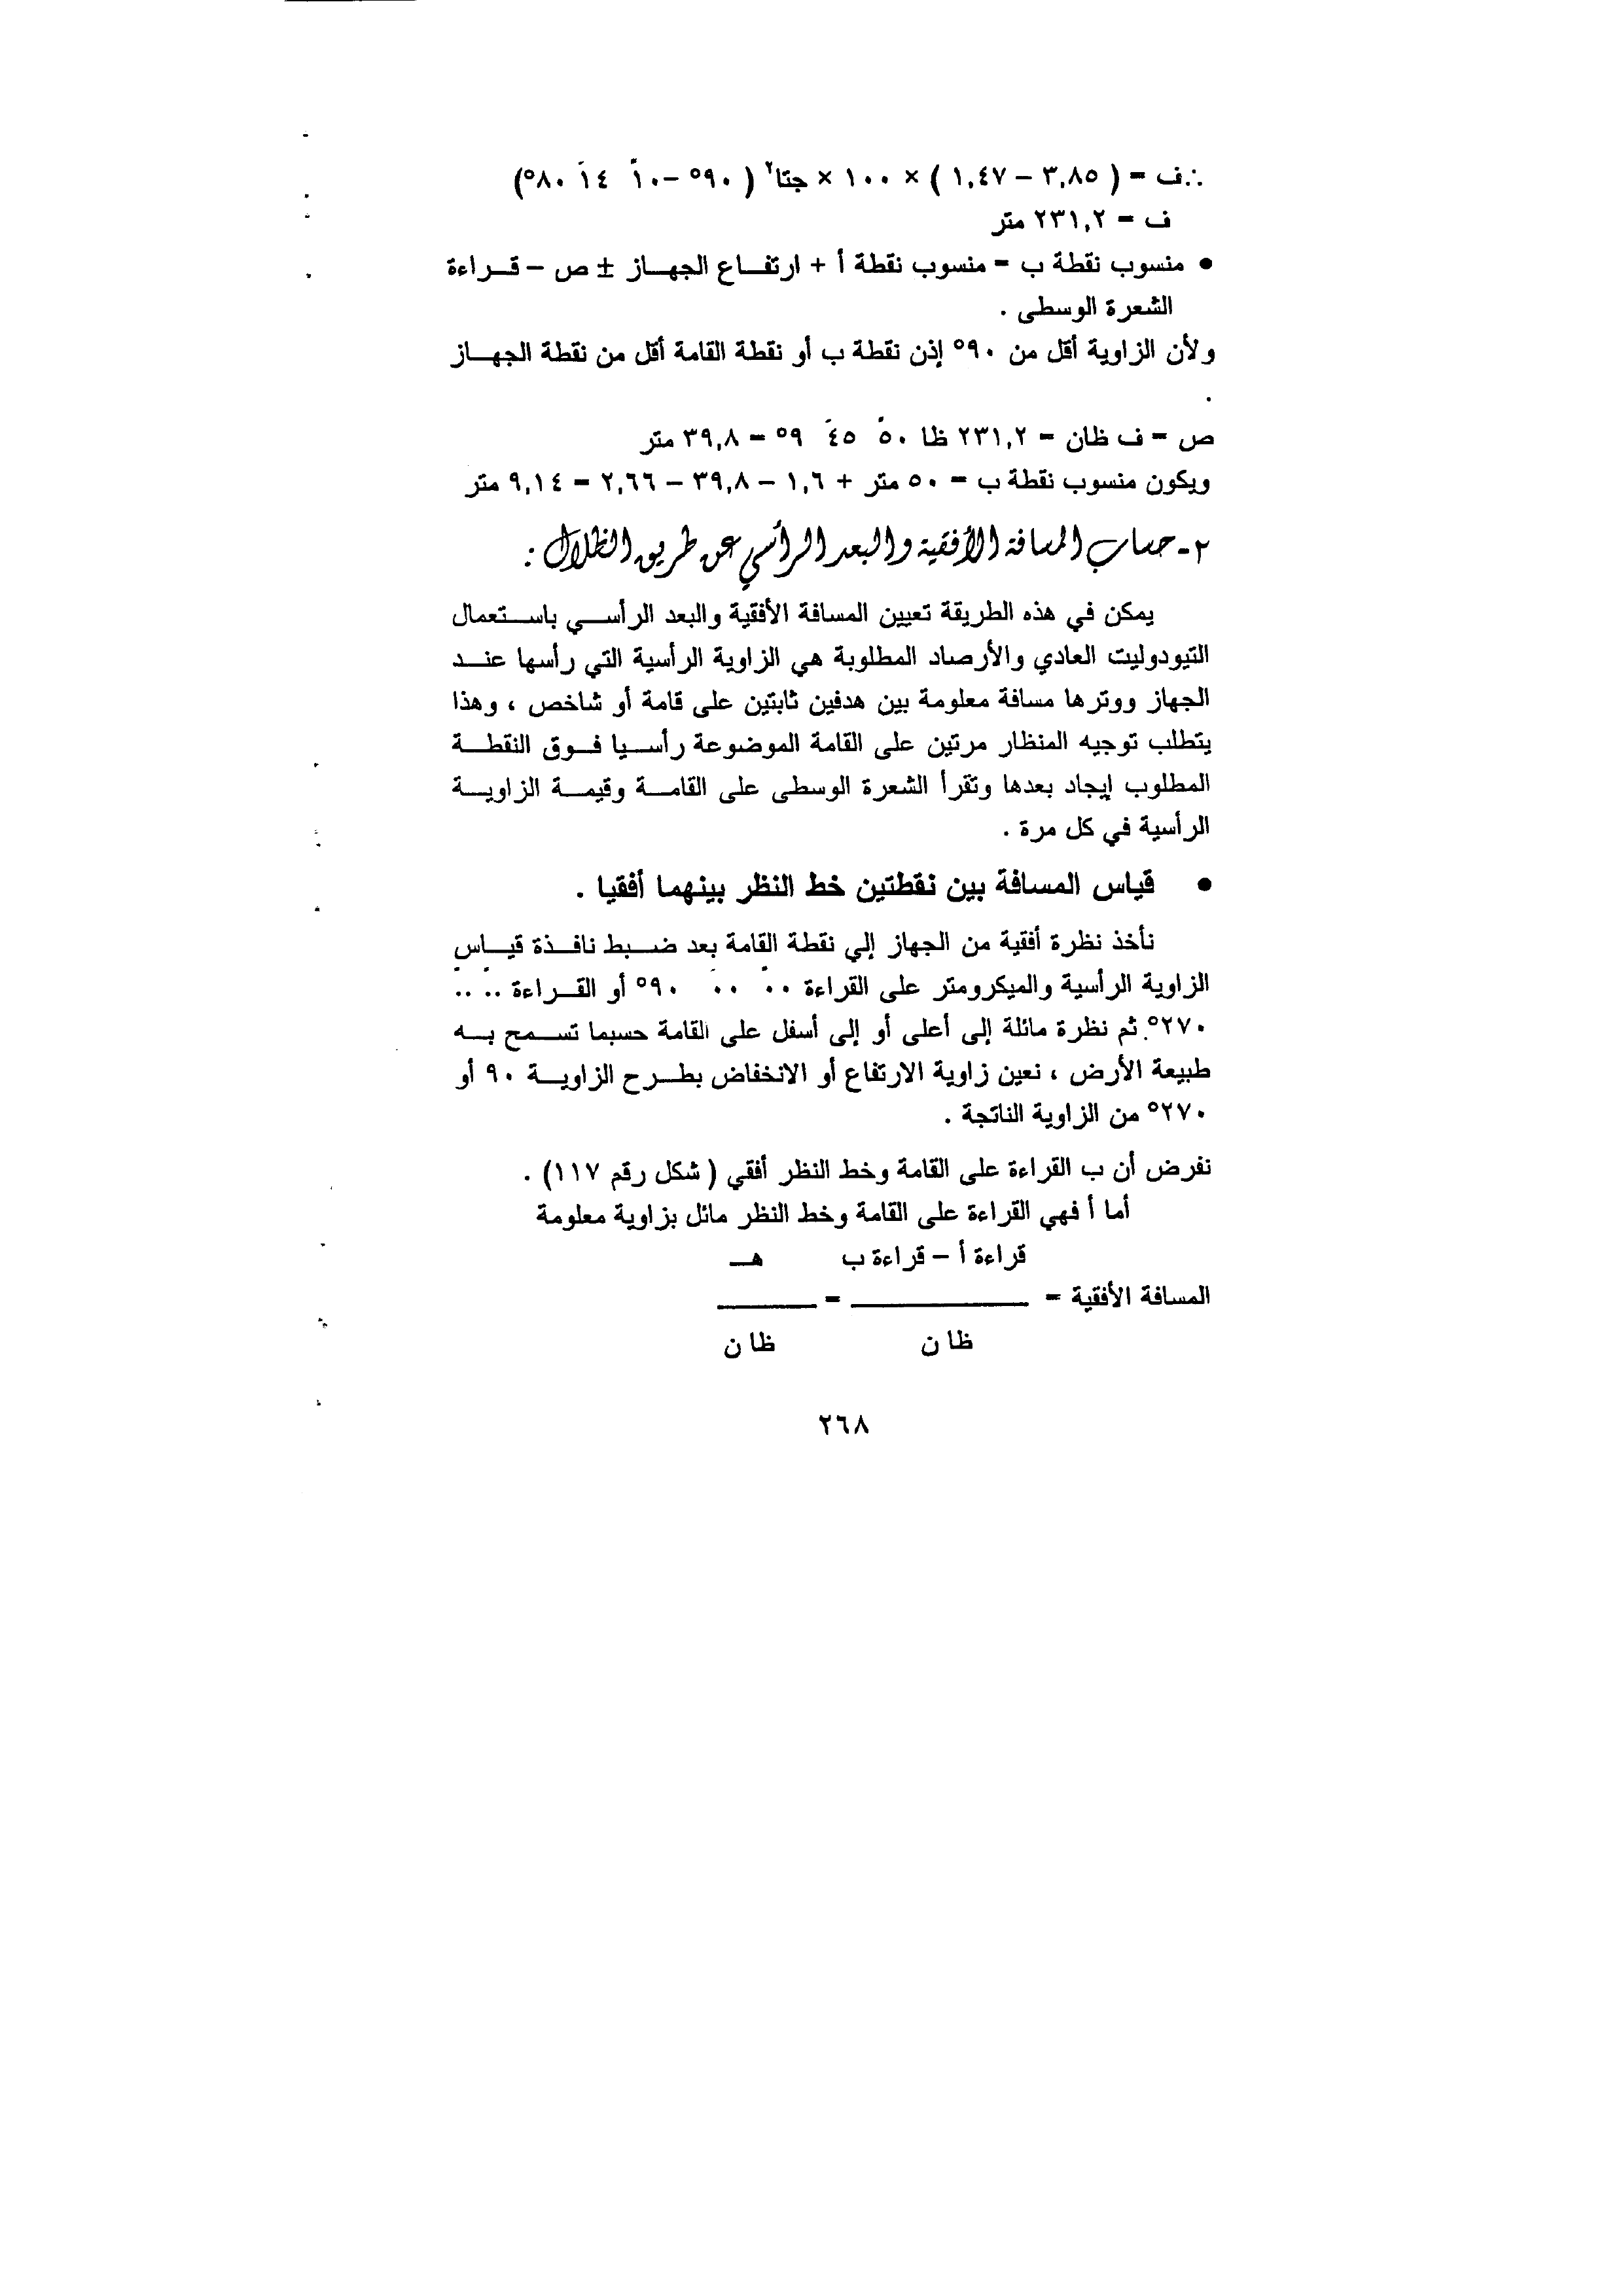 ∴ف = ( ٣,٨٥ – ١,٤٧ ) × ١٠٠ × جتا٢ ( ٩٠° – ١٠ً ١٤َ ٨٠°)
ف = ٢٣١,٢ متر
● منسوب نقطة ب = منسوب نقطة أ + ارتفاع الجهاز ± ص – قراءة
الشعرة الوسطى .
ولأن الزاوية أقل من ٩٠° إذن نقطة ب أو نقطة القامة أقل من نقطة الجهاز
.
ص = ف ظان = ٢٣١,٢ ظا ٥٠ً ٤٥َ ٩° = ٣٩,٨ متر
ويكون منسوب نقطة ب = ٥٠ متر + ١,٦ – ٣٩,٨ – ٢,٦٦ = ٩,١٤ متر
٢- حساب المسافة الأفقية والبعد الرأسي عن طريق الظلال :
يمكن في هذه الطريقة تعيين المسافة الأفقية والبعد الرأسي باستعمال
التيودوليت العادي والأرصاد المطلوبة هي الزاوية الرأسية التي رأسها عند
الجهاز ووترها مسافة معلومة بين هدفين ثابتين على قامة أو شاخص ، وهذا
يتطلب توجيه المنظار مرتين على القامة الموضوعة رأسيا فوق النقطة
المطلوب إيجاد بعدها وتقرأ الشعرة الوسطى على القامة وقيمة الزاوية
الرأسية في كل مرة .
● قياس المسافة بين نقطتين خط النظر بينهما أفقيا .
نأخذ نظرة أفقية من الجهاز إلي نقطة القامة بعد ضبط نافذة قياس
الزاوية الرأسية والميكرومتر على القراءة ٠٠ً ٠٠َ ٩٠° أو القراءة ٠٠ً ٠٠َ
٢٧٠°. ثم نظرة مائلة إلى أعلى أو إلى أسفل على القامة حسبما تسمح به
طبيعة الأرض ، نعين زاوية الارتفاع أو الانخفاض بطرح الزاوية ٩٠ أو
٢٧٠° من الزاوية الناتجة .
نفرض أن ب القراءة على القامة وخط النظر أفقي ( شكل رقم ١١٧) .
أما أ فهي القراءة على القامة وخط النظر مائل بزاوية معلومة
قراءة أ – قراءة ب هـ
المسافة الأفقية = ـــــــــ = ـــــــــ
ظا ن ظا ن
٢٦٨